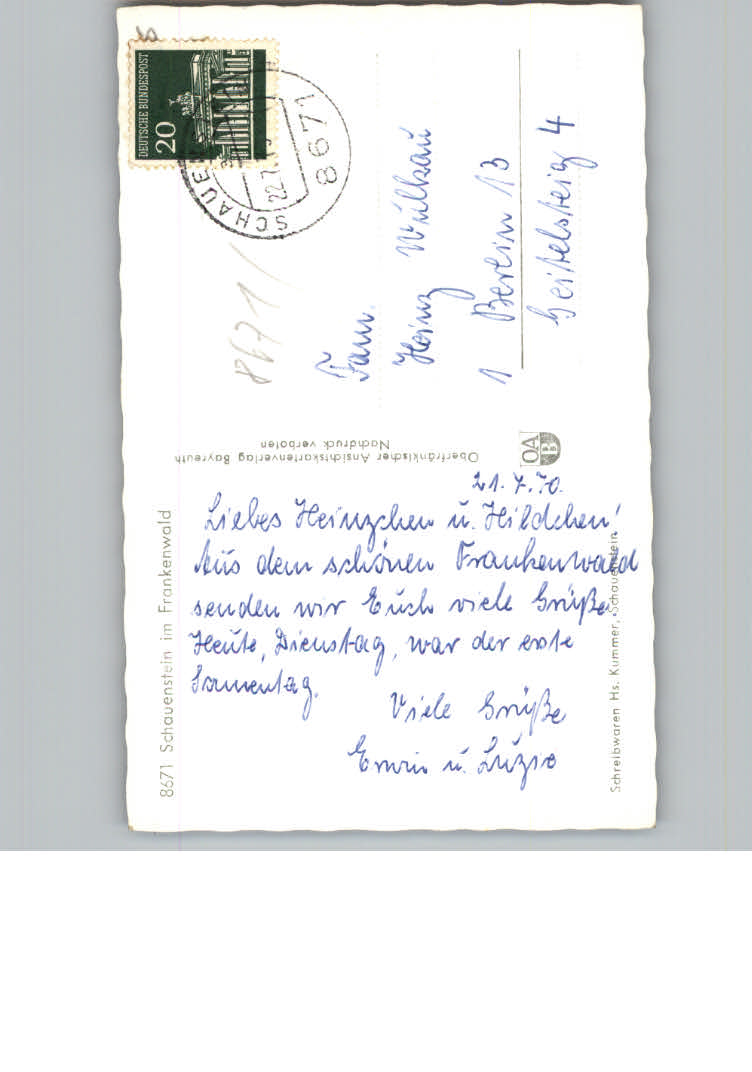 8671 Schauenstein im Frankenwald
21.7.70.
Liebes Heinzchen u. Hildchen!
Aus dem schönen Frankenwald
senden wir Euch viele Grüße
Heute, Dienstag, war der erste
Sonnentag.
Viele Grüße
Erwin u. Luzie
Oberfränkischer Ansichtskartenverlag Bayreuth
Nachdruck verboten
OA
B
Schreibwaren Hs. Kummer, Schauenstein
DEUTSCHE BUNDESPOST
20
8671
22.7.
8671
Fam.
Heinz Wulkau
1 Berlin 13
Geitelsteig 4